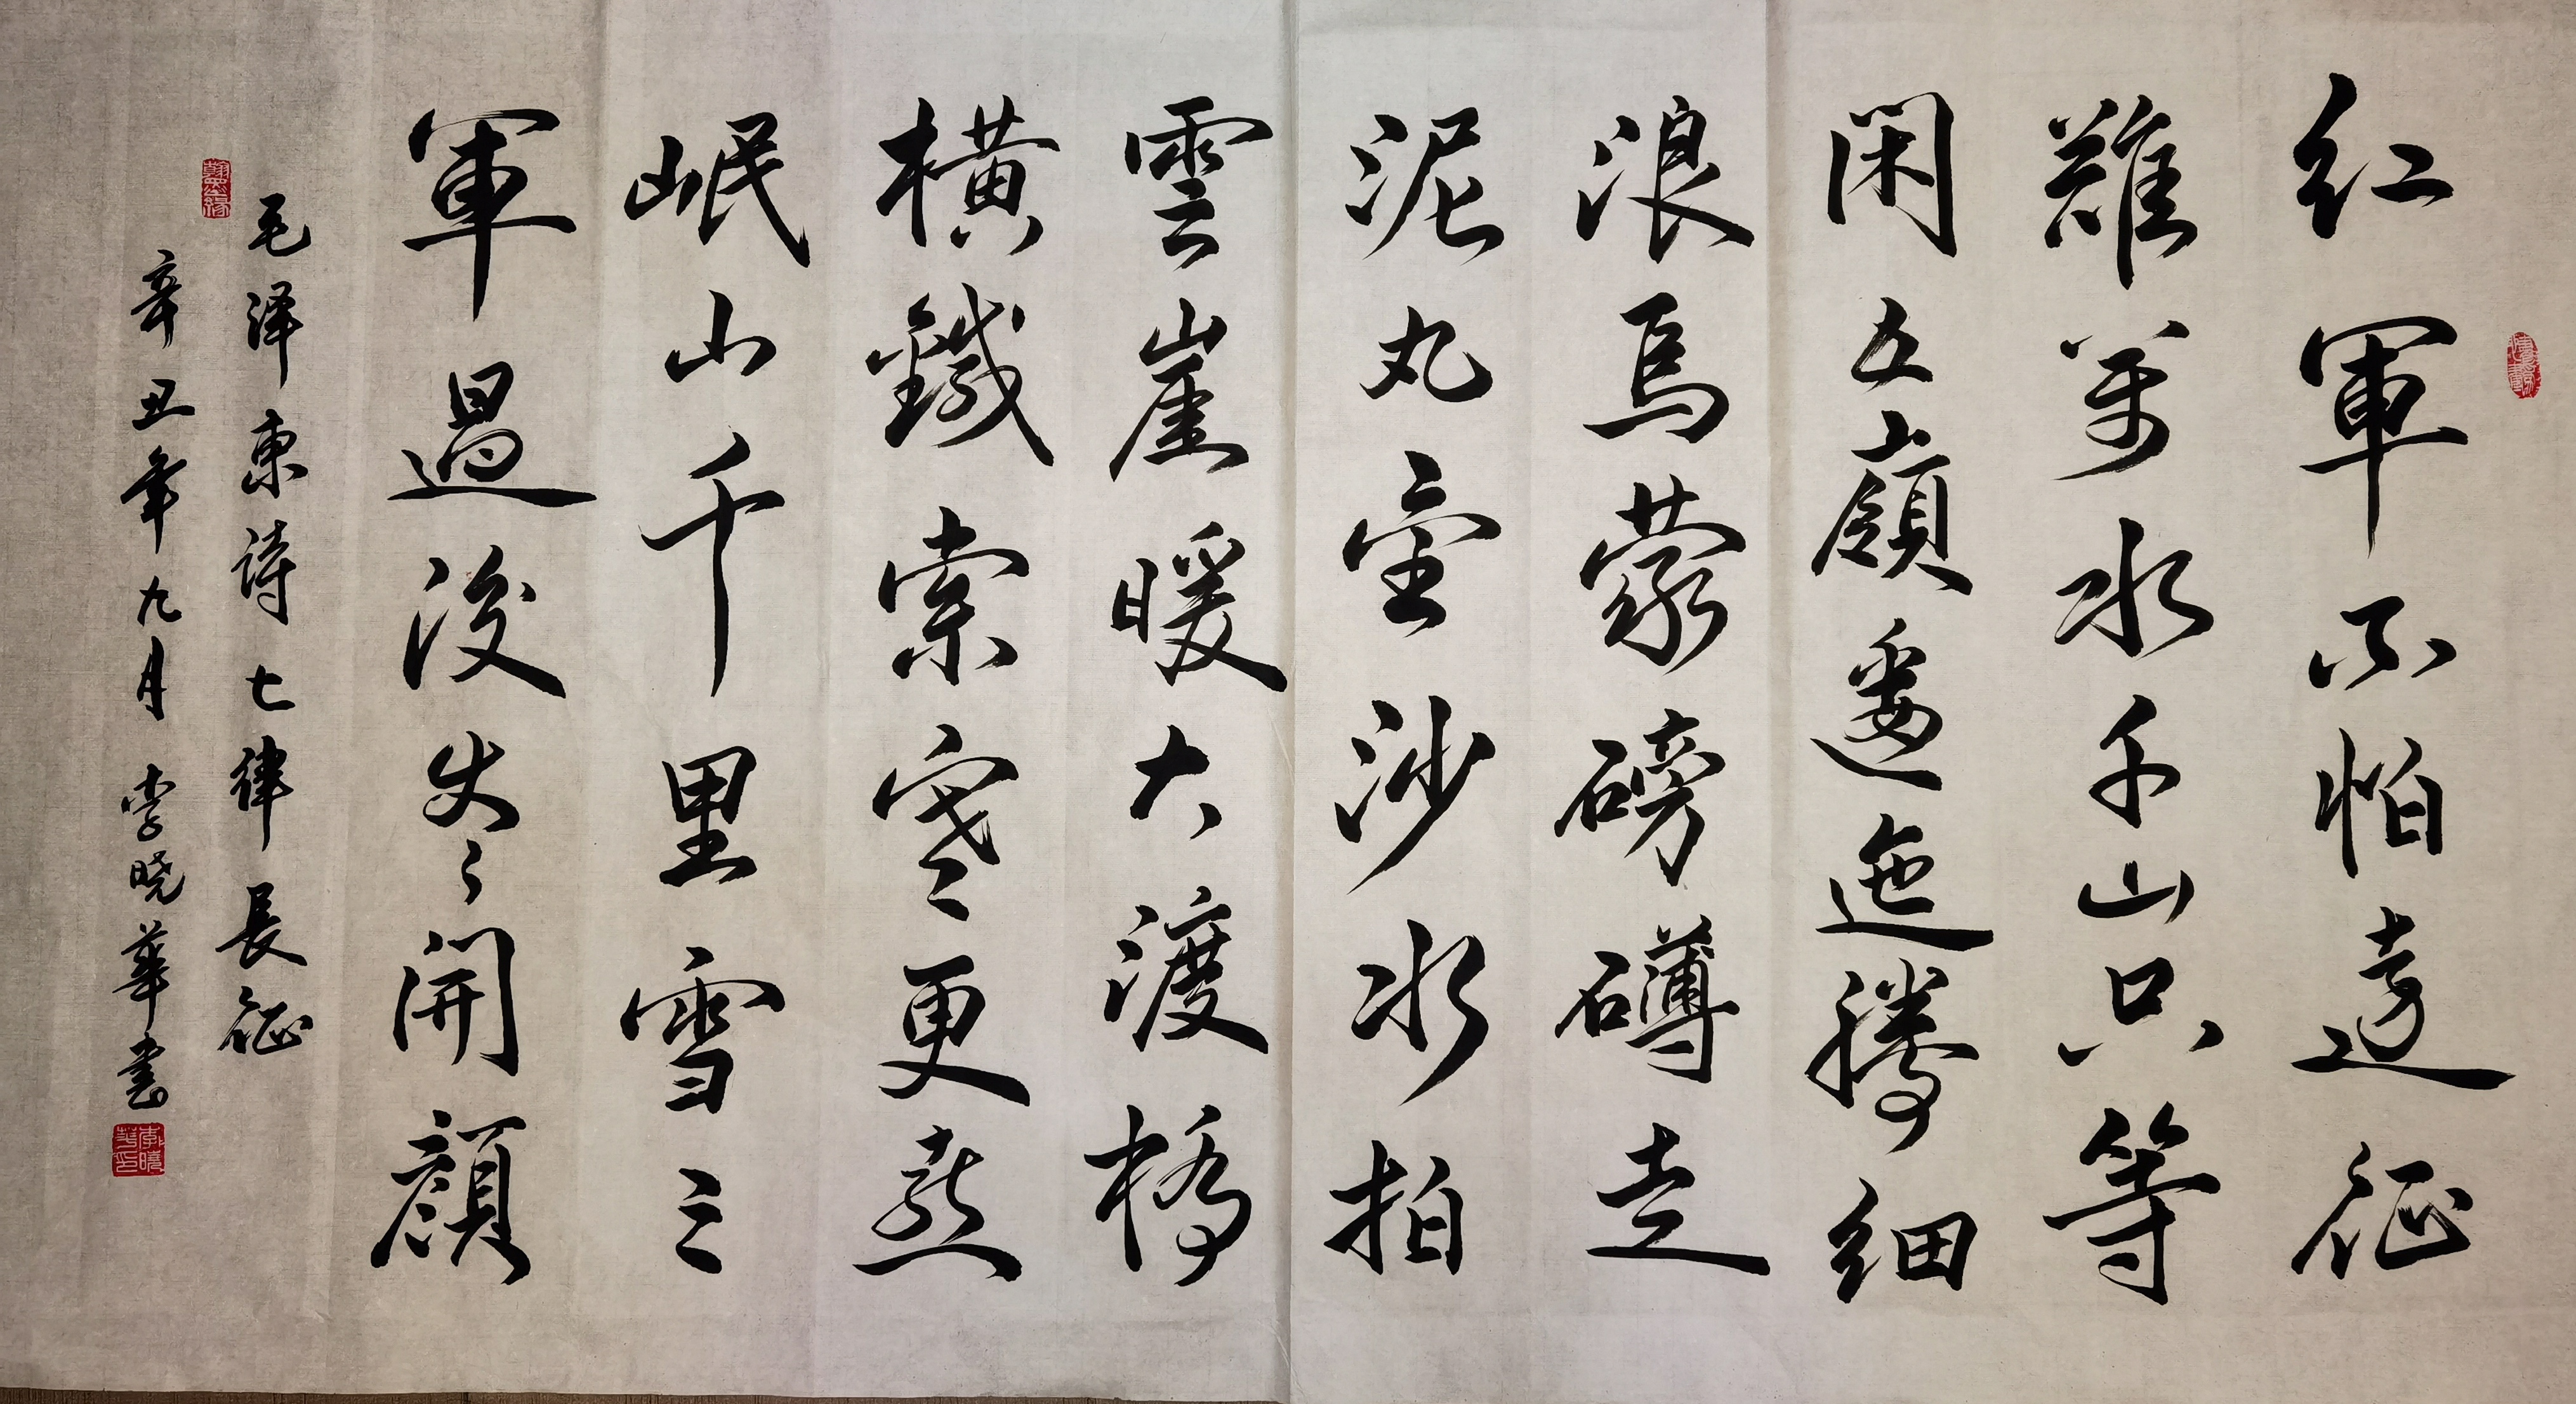 红軍不怕遠征
難萬水千山只等
閑五嶺逶迤騰細
浪烏蒙磅礴走
泥丸金沙水拍
雲崖暖大渡橋
橫鐵索寒更喜
岷山千里雪三
軍過後盡開顏
毛泽東詩七律長征
辛丑年九月 李晓華書
翰墨緣
李曉華印